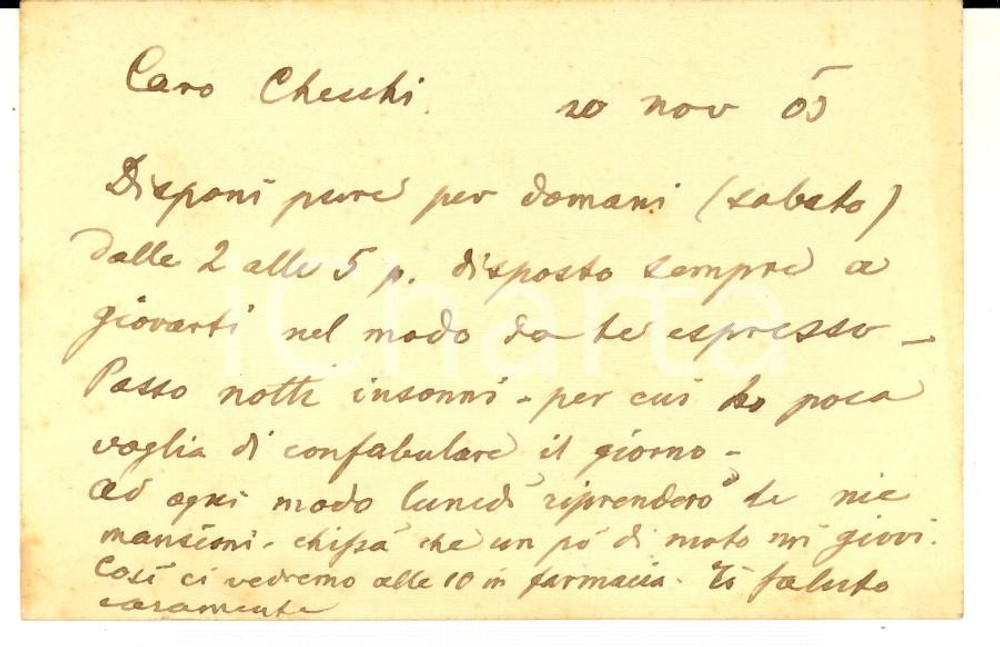 Caro Checchi. 20 nov 05
Disponi pure per domani (sabato)
dalle 2 alle 5 p. disposto sempre a
giovarti nel modo da te espresso –
Passo notti insonni – per cui ho poca
voglia di confabulare il giorno –
ad ogni modo lunedì riprenderò le mie
mansioni – chissà che un pò di moto mi giovi.
Così ci vedremo alle 10 in farmacia. Ti saluto
caramente
iCharta